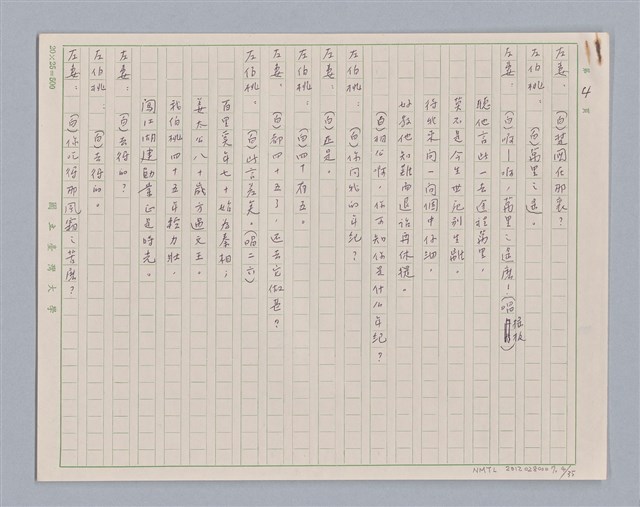 第 4 頁
左妻：(白)楚國在那裏？
左伯桃：(白)萬里之遙。
左妻：(白)啊！啊，萬里之遙麽！(唱搖板)
聽他言此一去途程萬里，
莫不是今生世死別生離。
待我來問一問個中仔細，
好教他知難而退話再休提。
(白)相公啊，你可知你是什么年紀？
左伯桃：(白)你問我的年紀？
左妻：(白)正是。
左伯桃：(白)四十有五。
左妻：(白)都四十五了，還去它做甚？
左伯桃：(白)此言差矣。(唱二六)
百里奚年七十始為秦相；
姜太公八十歲方遇文王。
我伯桃四十五年輕力壯，
闖江湖建勳業正是時光。
左妻：(白)去得的？
左伯桃：(白)去得的。
左妻：(白)你吃得那風霜之苦麽？
20×25=500
國立臺灣大學
NMTL